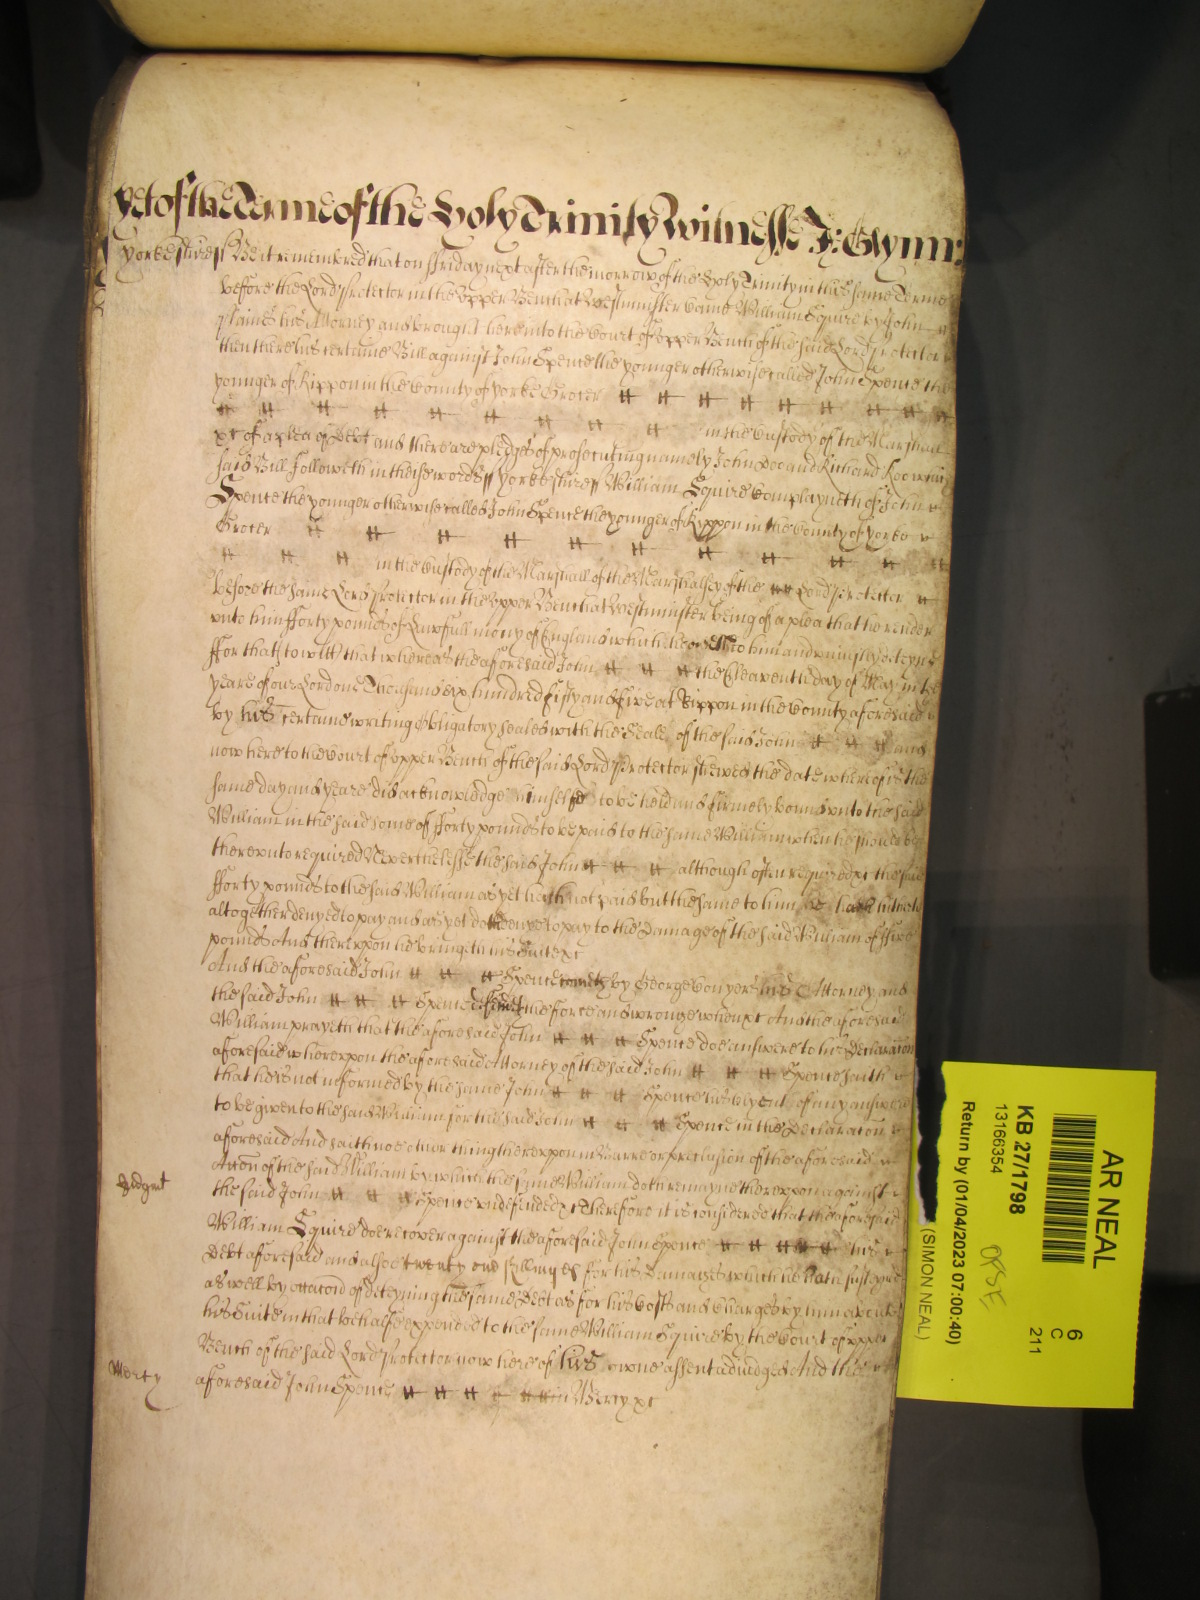 Yet of the Terme of the Holy Trinity Witnesse J: Glynn:
Yorkeshire// Be it remembred that on ffriday next after the morrow of the Holy Trinity in this same Terme
before the Lord Protector in the Upper Bench at Westminster came William Squire by John
his Attorney and brought here into the Court of Upper Bench of the said Lord Protector
then there his certaine Bill against John Spence the younger otherwise called John Spence the
younger of Rippon in the County of Yorke Grocer # # # # # # # # #
# # # # # # # # # in the Custody of the Marshall
xc of a plea of Debt and there are pledges of prosecuting namely John Doe and Richard Roe which
said Bill followeth in these words// Yorkeshire// William Squire Complayneth of John
Spence the younger otherwise called John Spence the younger of Rippon in the County of Yorke
Grocer # # # # # # # # # #
# # # in the Custody of the Marshall of the Marshalsey of the ## Lord Protector #
before the same Lord Protector in the Upper Bench at Westminster being of a plea that he render
unto him fforty pounds of Lawfull mony of England which he oweth to him and uniustly deteynes
ffor that (to witt) that whereas the aforesaid John # # # the Eleaventh day of May in the
yeare of our Lord one Thousand six hundred fifty and five at Rippon in the County aforesaid
by his certaine writing Obligatory sealed with the Seale of the said John # # # and
now here to the Court of Upper Bench of the said Lord Protector shewed the date whereof is the
same day and yeare did acknowledge himselfe to be held and firmely bound unto the said
William in the said some of fforty pounds to be paid to the same William when he should be
thereunto required Neverthelesse the said John # # # although often required xc the said
fforty pounds to the said William as yet hath not paid but the same to him to hath hitherto
altogether denyed to pay and as yet doth denye to pay to the Damage of the said William of ffive
pounds And thereupon he bringeth his Suite xc
And the aforesaid John # # # Spence cometh by George Conyers his Attorney and
the said John # # # Spence defendeth the force and wronge when xc And the aforesaid
William prayeth that the aforesaid John # # # Spence doe answere to his Declaracon
aforesaid whereupon the aforesaid Attorney of the said John # # # Spence saith
that he is not informed by the same John # # # Spence his Clyent of any answere
to be given to the said William for the said John # # # Spence in the Declaracon
aforesaid And saith noe other thing thereupon in Barre or preclusion of the aforesaid
Accon of the said William by which the same William doth remayne thereupon against
Judgmt
the said John # # # Spence undefended xc Therefore it is considered that the aforesaid
William Squire doe recover against the aforesaid John Spence # # # # # his
Debt aforesaid and alsoe twenty one shillinges for his Damages which he hath susteyned
as well by occacion of deteyning the same Debt as for his Costs and Charges by him about
his Suite in that behalfe expended to the same William Squire by the Court of Upper
Bench of the said Lord Protector now here of his owne assent adiudged And the
Mercy
aforesaid John Spence # # # # ## in Mercy xc
AR NEAL
KB 27/1798
13166354
Return by (01/04/2023 07:00:40)
(SIMON NEAL)
6
C
211